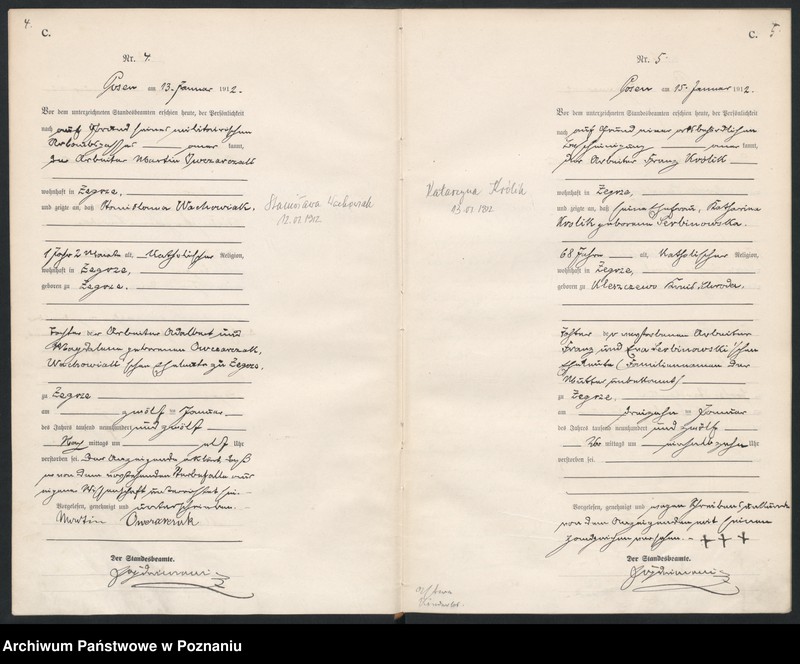 4.
C.
Nr. 4.
Posen am 13. Januar 1912.
Vor dem unterzeichneten Standesbeamten erschien heute, der Persönlichkeit
nach auf Grund seines militärischen
kannt,
der Arbeiter Martin Owczarczak
wohnhaft in Żegrze,
und zeigte an, daß Stanislawa Wachowiak,
1 Jahr 2 Monate alt, katholischer Religion,
wohnhaft in Żegrze,
geboren zu Żegrze,
Tochter der Arbeiter Adalbert und
Magdalena geborenen Owczarczak,
Wachowiak'schen Eheleute zu Żegrze,
zu Żegrze
am zwölften Januar
des Jahres tausend neunhundert und zwölf
Nachmittags um elf Uhr
verstorben sei. Der Anzeigende erklärt, daß
er von dem vorstehenden Sterbefalle aus
eigener Wissenschaft unterrichtet sei.
Vorgelesen, genehmigt und unterschrieben.
Martin Owczarczak
Der Standesbeamte.
Stanisława Wachowiak
12.01.1912
C. 5.
Nr. 5
Posen am 15. Januar 1912.
Vor dem unterzeichneten Standesbeamten erschien heute, der Persönlichkeit
nach auf Grund einer ortsbehördlichen
Bescheinigung kannt,
der Arbeiter Franz Królik
wohnhaft in Żegrze,
und zeigte an, daß seine Ehefrau, Katharina
Królik geborene Serbinowska,
68 Jahre alt, katholischer Religion,
wohnhaft in Żegrze,
geboren zu Kleszczewo Kreis Schroda,
Tochter der verstorbenen Arbeiter
Franz und Eva Serbinowski'schen
Eheleute (Familiennamen der
Mutter unbekannt)
zu Żegrze
am dreizehnten Januar
des Jahres tausend neunhundert und zwölf
mittags um Uhr
verstorben sei.
Vorgelesen, genehmigt und wegen Schreibensunkunde
von dem Anzeigenden mit seinem
Handzeichen versehen. - + + +
Der Standesbeamte.
Katarzyna Królik
13.01.1912
Archiwum Państwowe w Poznaniu